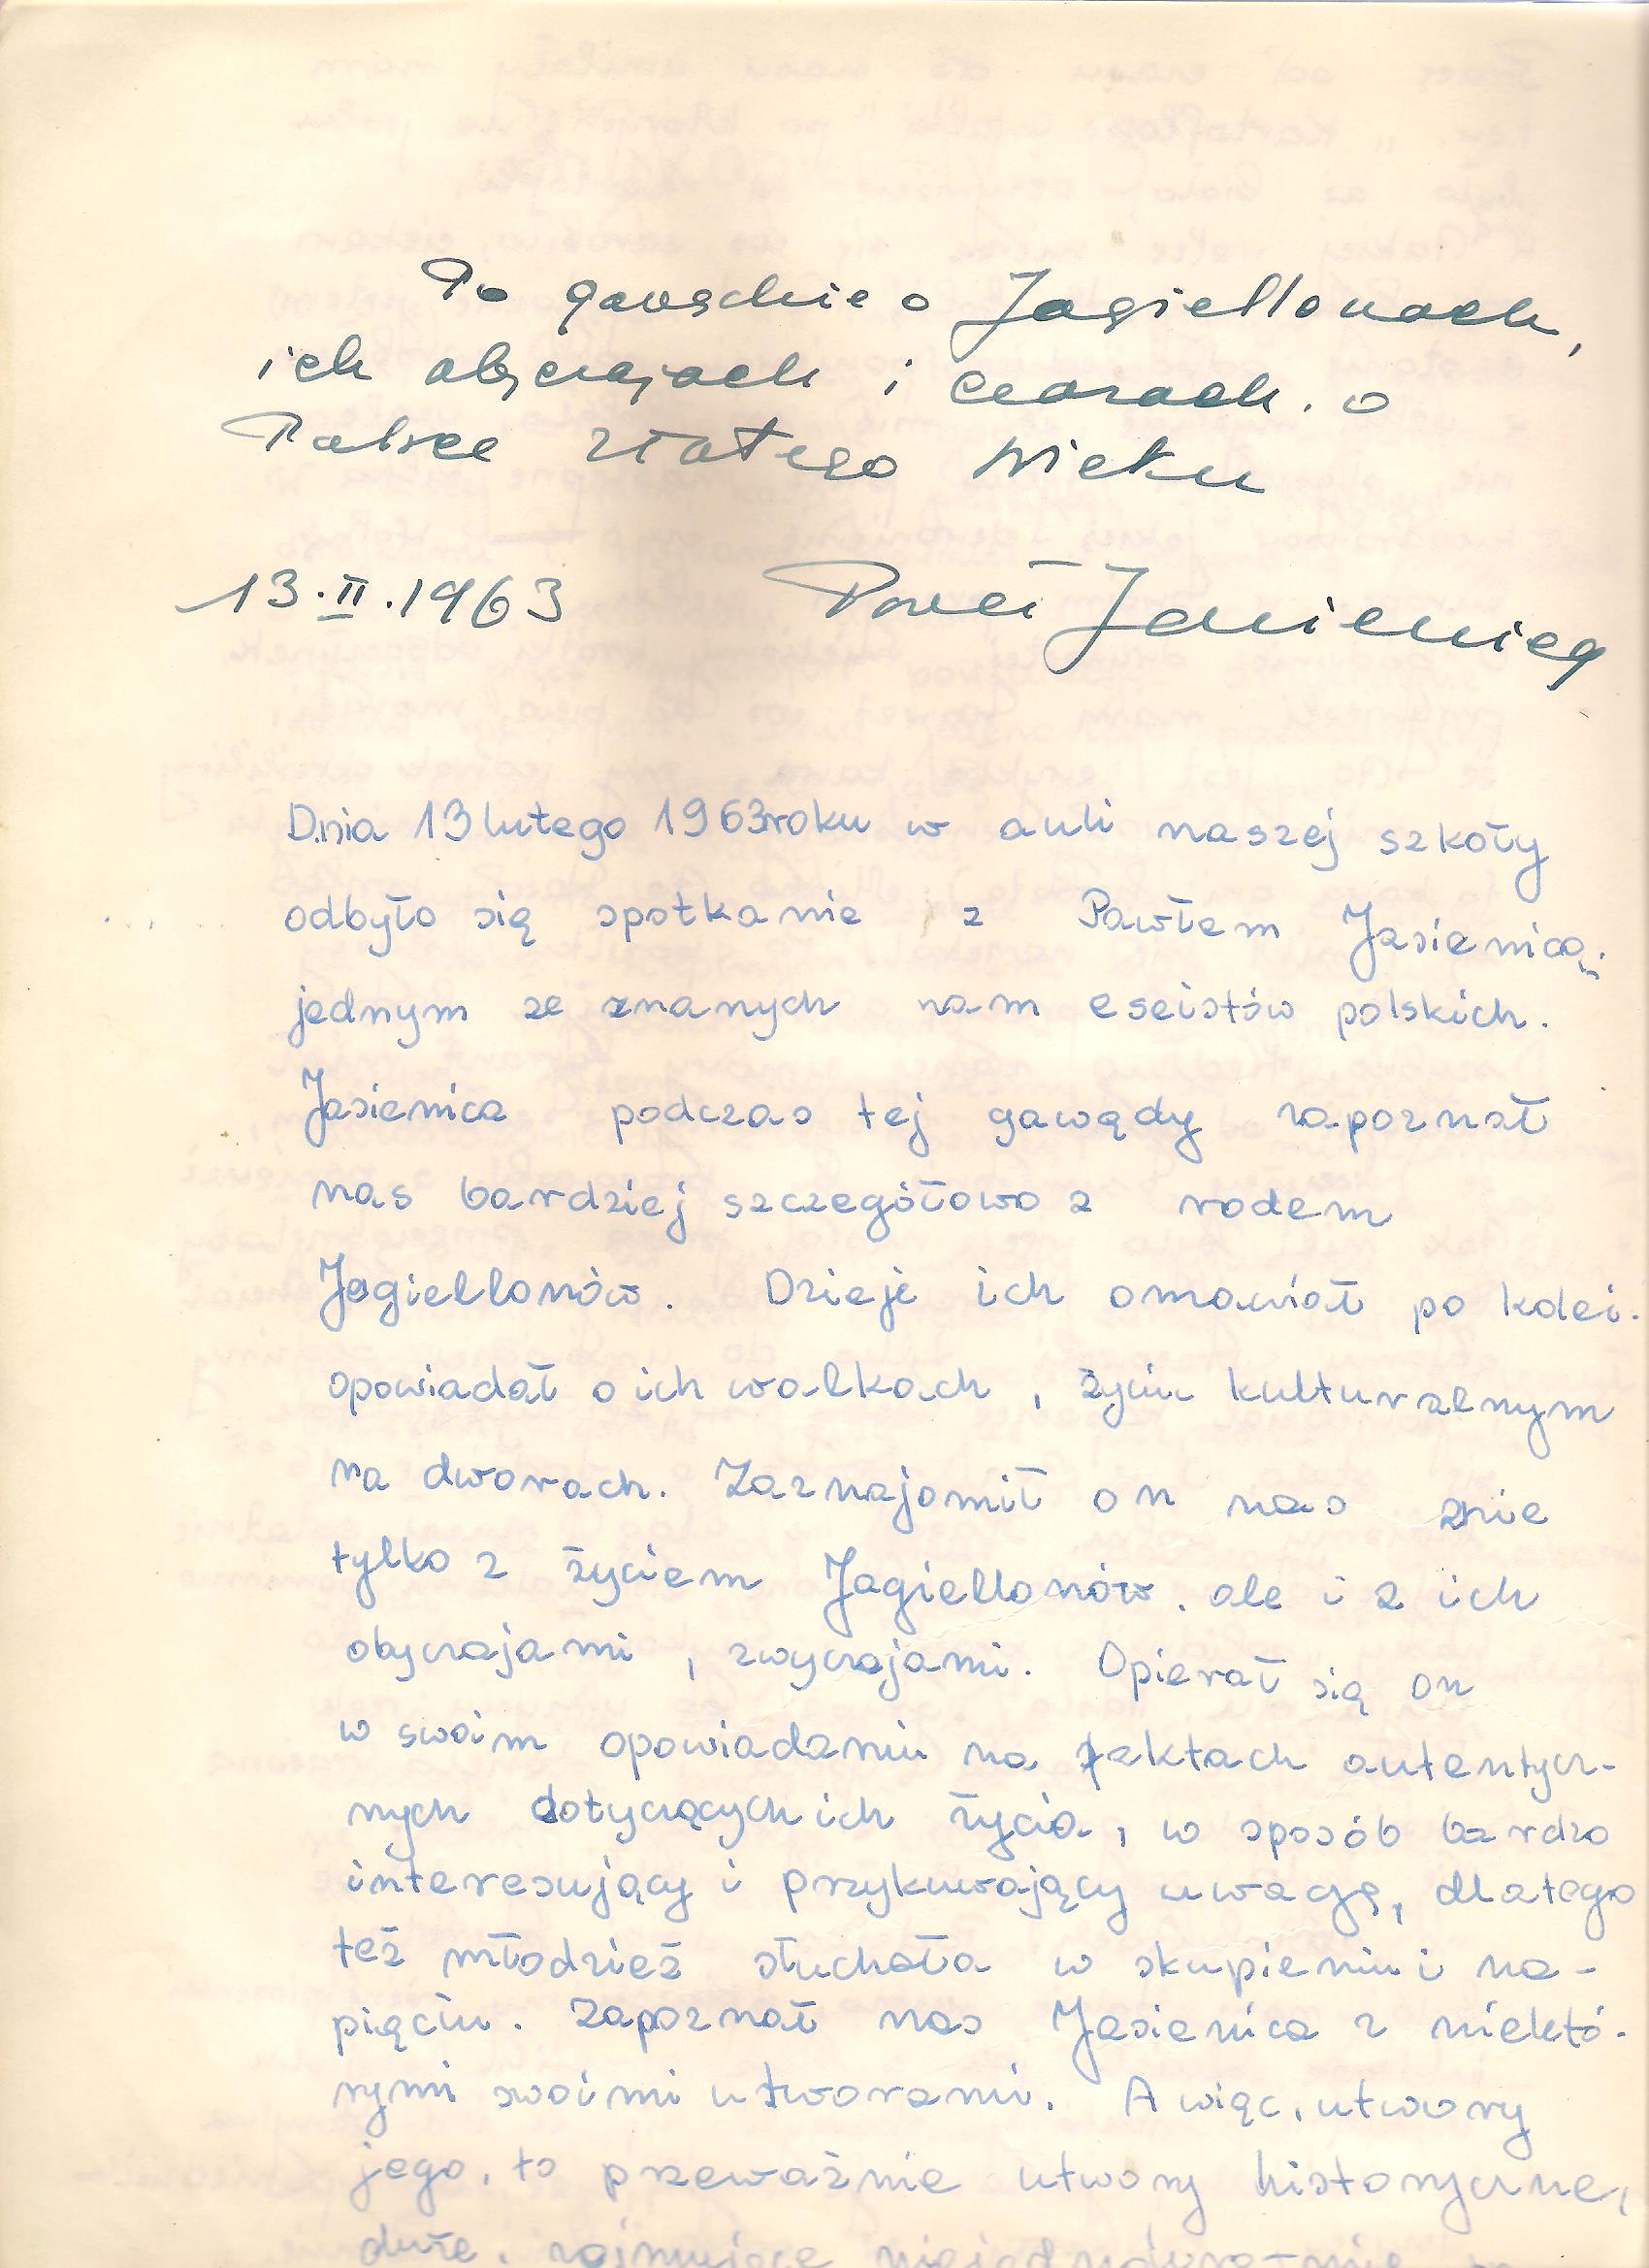 Po gawędzie o Jagiellonach,
ich obyczajach i czasach. o
Polsce złotego wieku
13.II.1963 Paweł Jasienica
Dnia 13 lutego 1963 roku w auli naszej szkoły
odbyło się spotkanie z Pawłem Jasienicą.
jednym ze znanych nam eseistów polskich.
Jasienica podczas tej gawędy zapoznał
nas bardziej szczegółowo z rodem
Jagiellonów. Dzieje ich omawiał po kolei.
opowiadał o ich walkach, życiu kulturalnym
na dworach. Zaznajomił on nas nie
tylko z życiem Jagiellonów, ale i z ich
obyczajami, zwyczajami. Opierał się on
w swoim opowiadaniu na faktach autentycz-
nych dotyczących ich życia, w sposób bardzo
interesujący i przykuwający uwagę, dlatego
też młodzież słuchała w skupieniu i na-
pięciu. Zapoznał nas Jasienica z niektó-
rymi swoimi utworami. A więc, utwory
jego, to przeważnie utwory historyczne,
duże, zajmujące niejednokrotnie